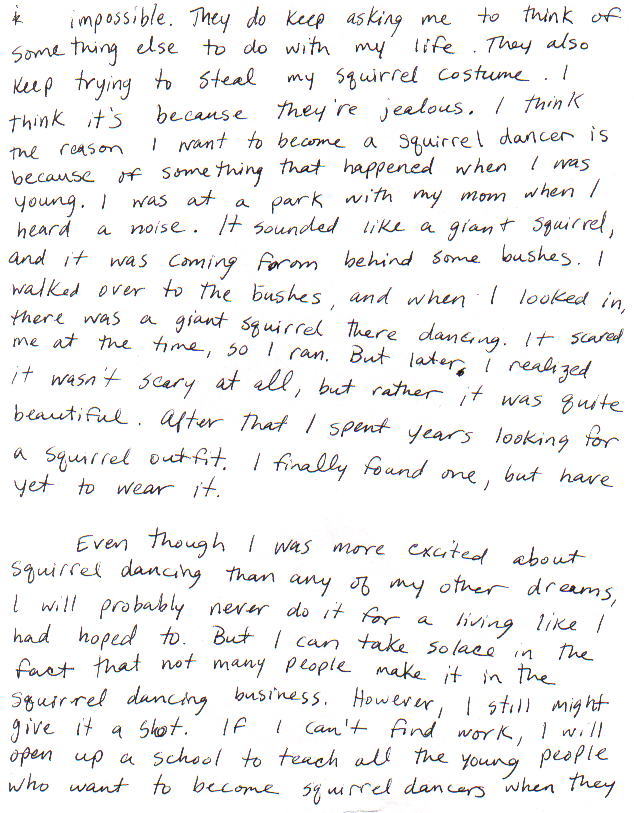 is impossible. They do keep asking me to think of
something else to do with my life. They also
keep trying to steal my squirrel costume. I
think it's because they're jealous. I think
the reason I want to become a squirrel dancer is
because of something that happened when I was
young. I was at a park with my mom when I
heard a noise. It sounded like a giant squirrel,
and it was coming forom behind some bushes. I
walked over to the bushes, and when I looked in,
there was a giant squirrel there dancing. It scared
me at the time, so I ran. But later, I realized
it wasn't scary at all, but rather it was quite
beautiful. After that I spent years looking for
a squirrel outfit. I finally found one, but have
yet to wear it.

Even though I was more excited about
squirrel dancing than any of my other dreams,
I will probably never do it for a living like I
had hoped to. But I can take solace in the
fact that not many people make it in the
squirrel dancing business. However, I still might
give it a shot. If I can't find work, I will
open up a school to teach all the young people
who want to become squirrel dancers when they